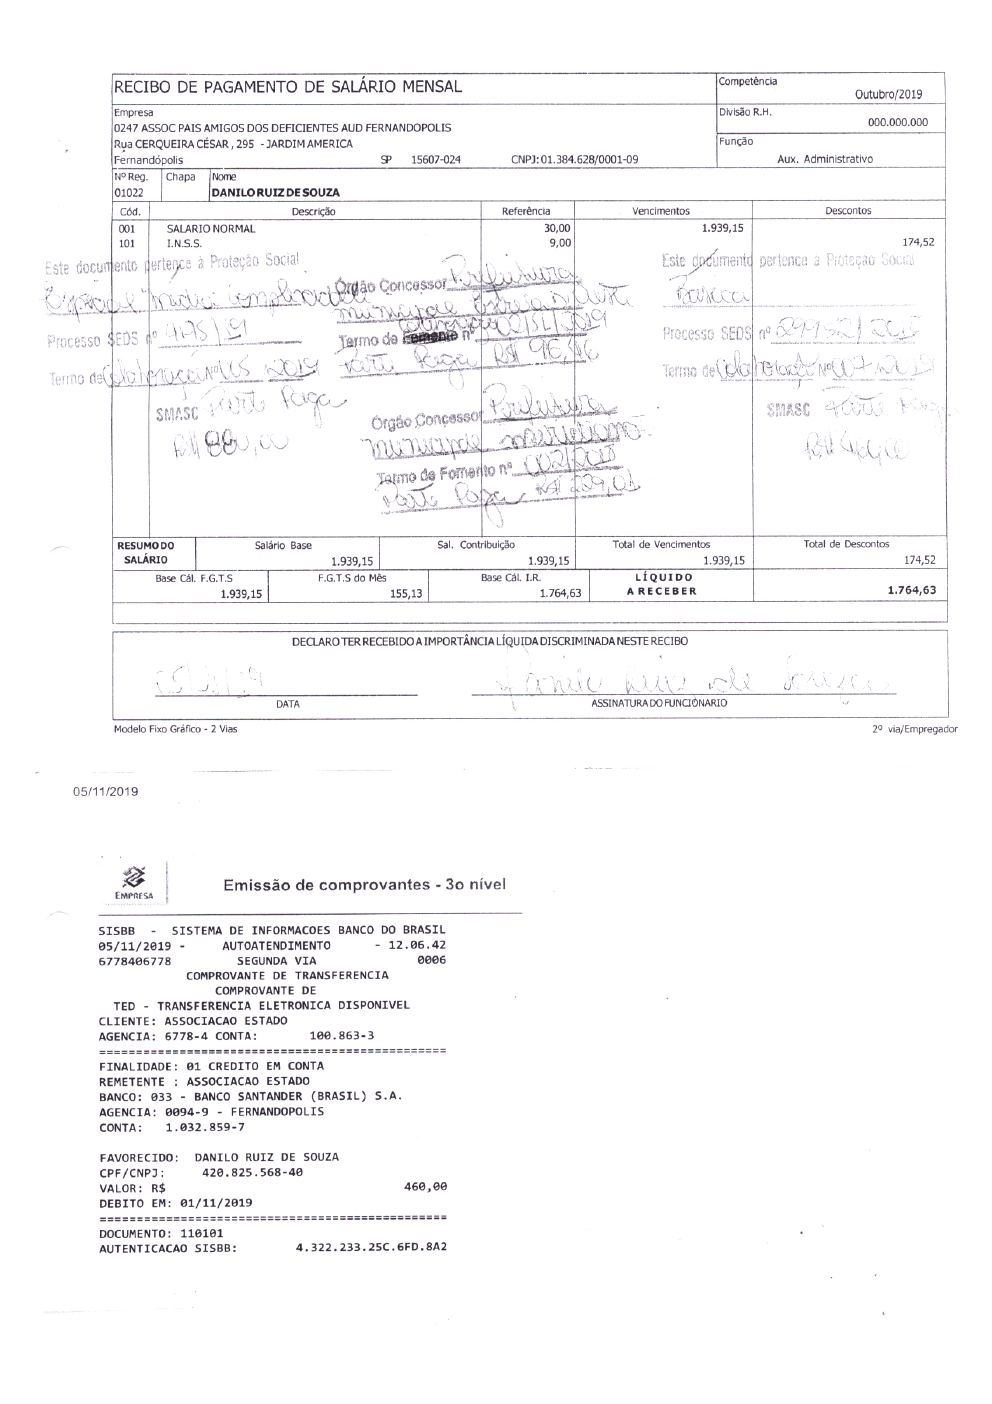 RECIBO DE PAGAMENTO DE SALÁRIO MENSAL
Competência
Outubro/2019
Empresa
0247 ASSOC PAIS AMIGOS DOS DEFICIENTES AUD FERNANDOPOLIS
Rua CERQUEIRA CÉSAR , 295 - JARDIM AMERICA
Fernandópolis SP 15607-024 CNPJ: 01.384.628/0001-09
Divisão R.H.
000.000.000
Função
Aux. Administrativo
Nº Reg. Chapa Nome
01022 DANILO RUIZ DE SOUZA
Cód. Descrição Referência Vencimentos Descontos
001 SALARIO NORMAL 30,00 1.939,15
101 I.N.S.S. 9,00 174,52
Este documento pertence à Proteção Social
Especial
Processo SEDS nº 475/19
Termo de Colaboração Nº 05 2019
SMASC Parte Paga
R$ 880,00
Órgão Concessor Prefeitura
Municipal
Termo de Fomento nº
Parte Paga R$
Órgão Concessor Prefeitura
Municipal
Termo de Fomento nº 002/2018
Parte Paga R$
Este documento pertence à Proteção Social
Básica
Processo SEDS nº
Termo de Colaboração Nº
SMASC Parte Paga
R$
RESUMO DO SALÁRIO
Salário Base Sal. Contribuição Total de Vencimentos Total de Descontos
1.939,15 1.939,15 1.939,15 174,52
Base Cál. F.G.T.S F.G.T.S do Mês Base Cál. I.R. LÍQUIDO A RECEBER
1.939,15 155,13 1.764,63 1.764,63
DECLARO TER RECEBIDO A IMPORTÂNCIA LÍQUIDA DISCRIMINADA NESTE RECIBO
Danilo Ruiz de Souza
DATA ASSINATURA DO FUNCIONARIO
Modelo Fixo Gráfico - 2 Vias 2º via/Empregador
05/11/2019
EMPRESA
Emissão de comprovantes - 3o nível
SISBB - SISTEMA DE INFORMACOES BANCO DO BRASIL
05/11/2019 - AUTOATENDIMENTO - 12.06.42
6778406778 SEGUNDA VIA 0006
COMPROVANTE DE TRANSFERENCIA
COMPROVANTE DE
TED - TRANSFERENCIA ELETRONICA DISPONIVEL
CLIENTE: ASSOCIACAO ESTADO
AGENCIA: 6778-4 CONTA: 100.863-3
================================================
FINALIDADE: 01 CREDITO EM CONTA
REMETENTE : ASSOCIACAO ESTADO
BANCO: 033 - BANCO SANTANDER (BRASIL) S.A.
AGENCIA: 0094-9 - FERNANDOPOLIS
CONTA: 1.032.859-7
FAVORECIDO: DANILO RUIZ DE SOUZA
CPF/CNPJ: 420.825.568-40
VALOR: R$ 460,00
DEBITO EM: 01/11/2019
================================================
DOCUMENTO: 110101
AUTENTICACAO SISBB: 4.322.233.25C.6FD.8A2